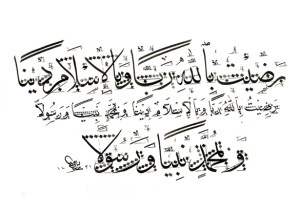 رضيت بالله ربا وبالاسلام دينا
رضيت بالله ربا وبالاسلام دينا وبمحمد نبيا ورسولا
وبمحمد نبيا ورسولا